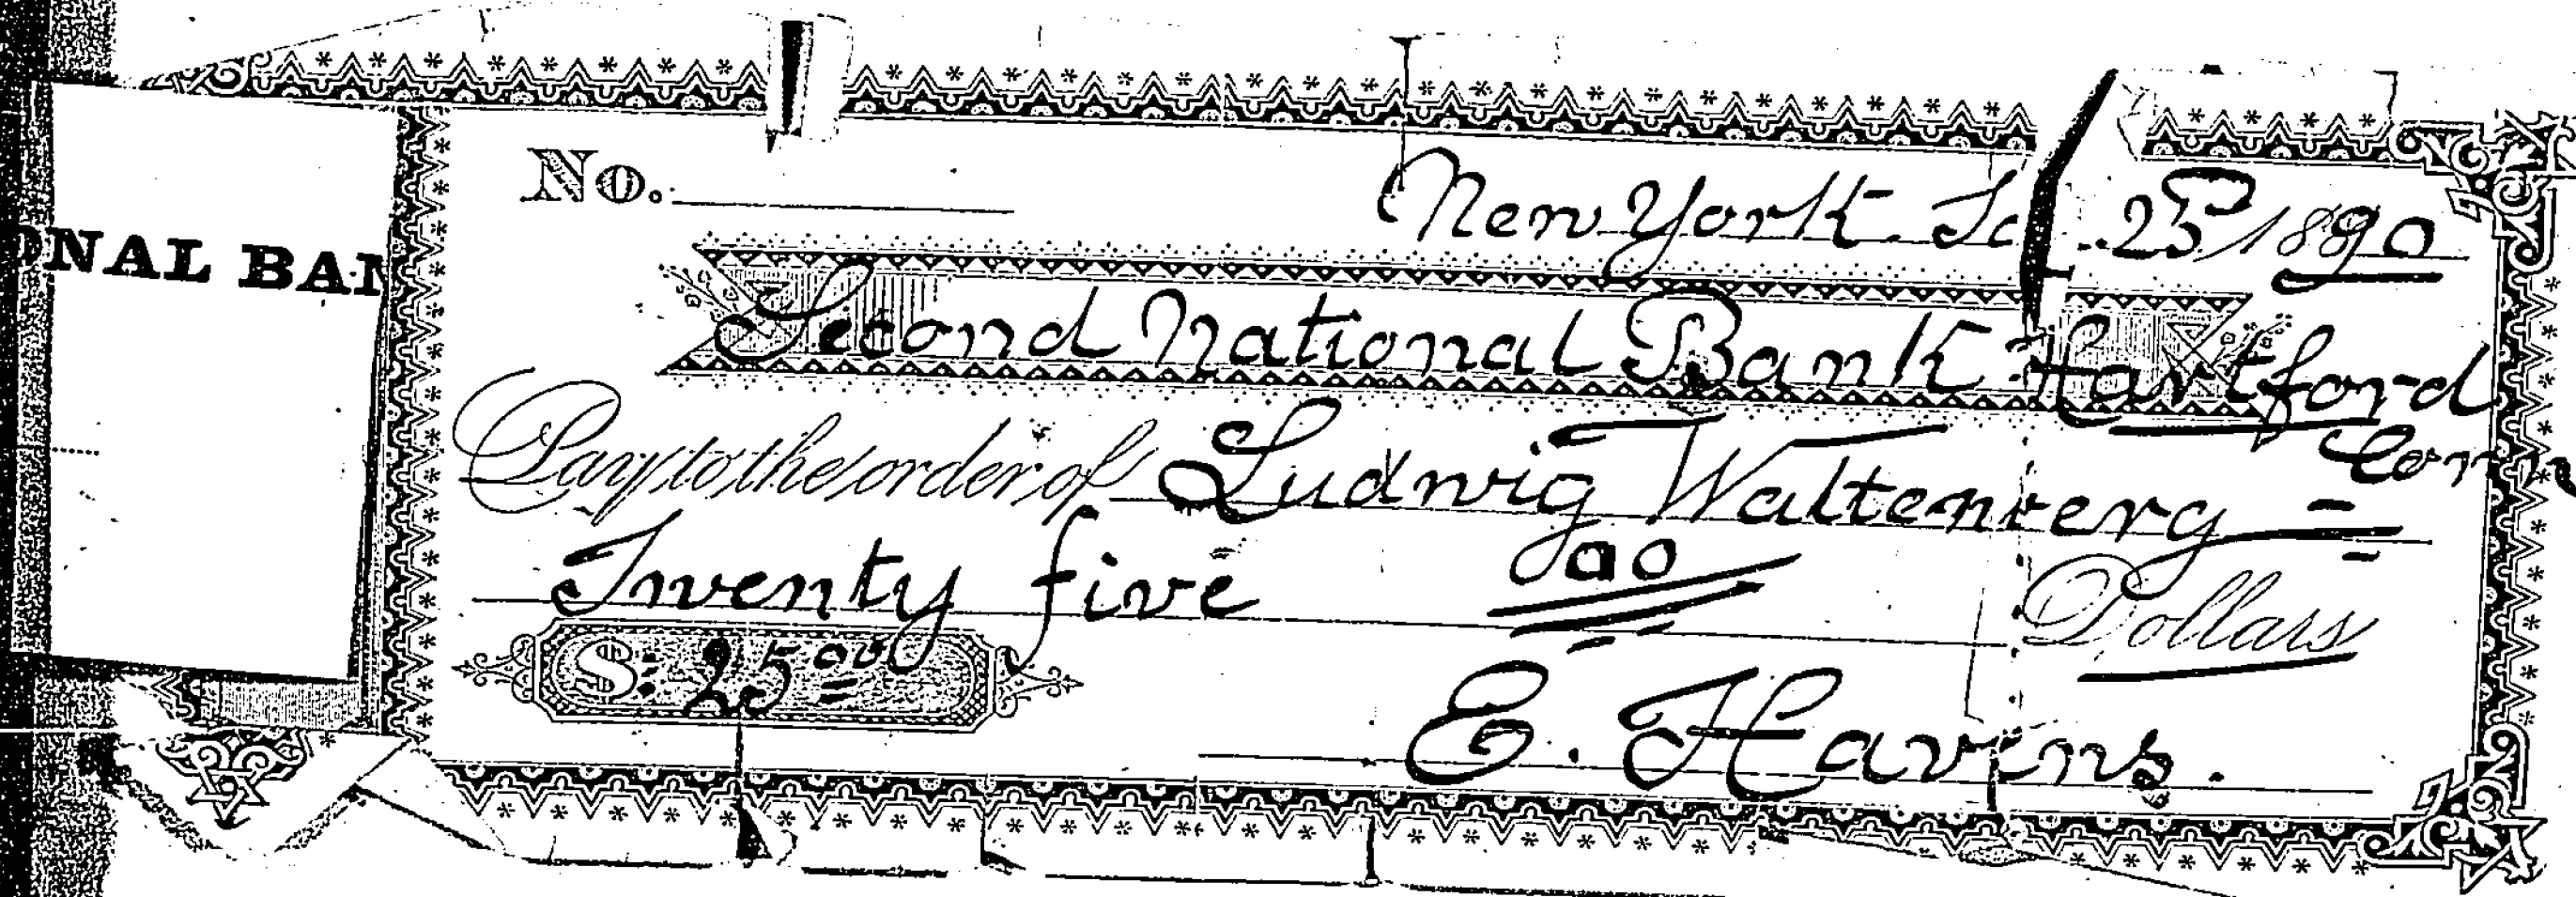 ONAL BAN
No.
New York. 25 1890
Second National Bank Hartford
Conn
Pay to the order of Ludwig Waltenberg
Twenty five 00 Dollars
$ 25 00
E. Havens.